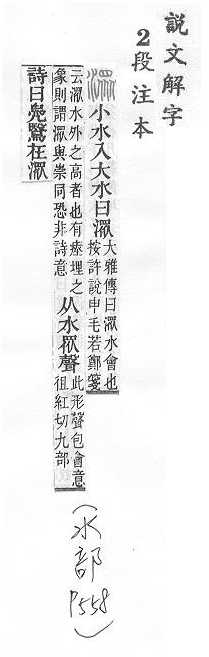 説文解字
2段注本
小水入大水曰潀大雅傳曰潀水會也按許說申毛若鄭箋
云潀水外之高者也有瘞埋之象則謂潀與崇同恐非詩意从水眾聲此形聲包會意徂紅切九部
詩曰鳧鷖在潀
(水部P558)